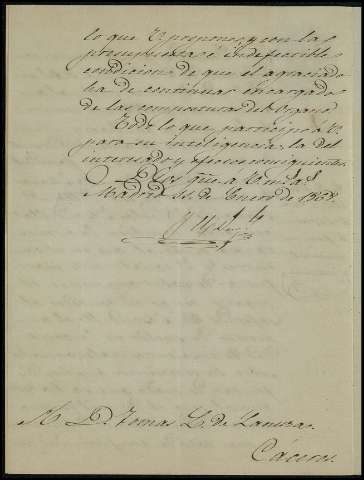 lo que V. propone; y con las
presupuestas é indefectibles
condiciones de que el agraciado
ha de continuar encargado
de las composturas del Organo.
Todo lo que participo á V.
para su inteligencia, la del
interesado y efectos consiguientes.
Dios gue á V. ms. as.
Madrid de Enero de
D. Tomas L. de Lanuza.
Cáceres.